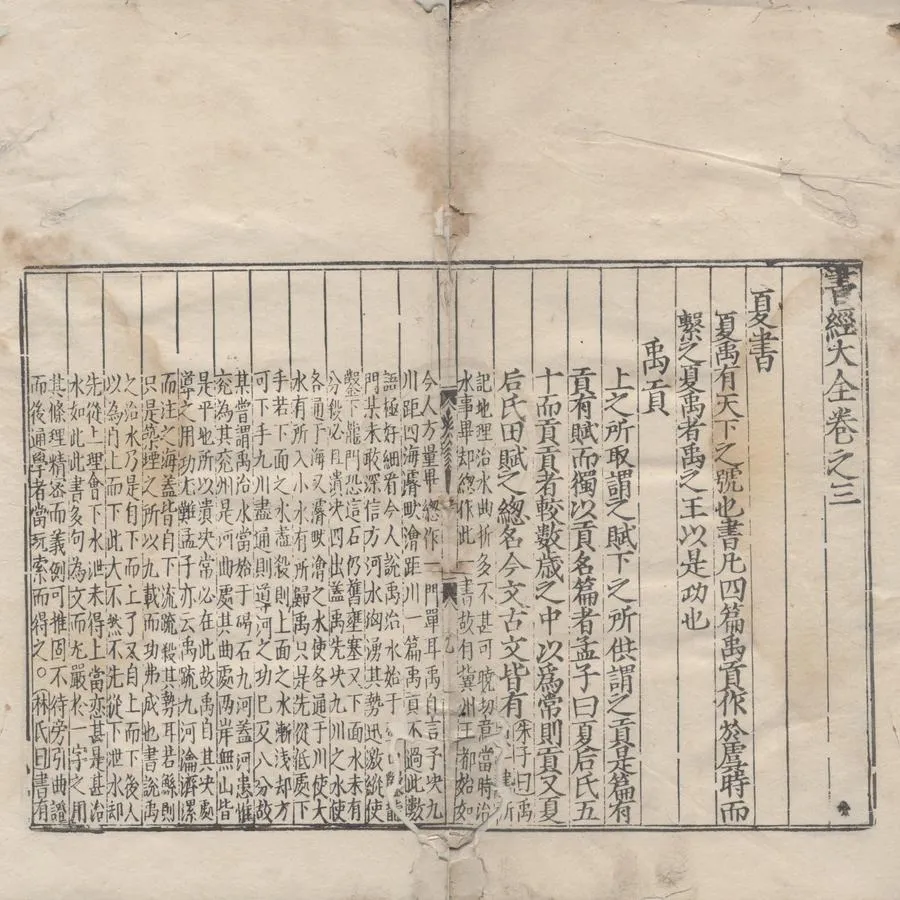 書經大全卷之三
夏書
夏禹有天下之號也書凡四篇禹貢作於虞時而
繫之夏禹者禹之王以是功也
禹貢
上之所取謂之賦下之所供謂之貢是篇有
貢有賦而獨以貢名篇者孟子曰夏后氏五
十而貢貢者較數歲之中以為常則貢又夏
后氏田賦之總名今文古文皆有朱子曰禹
記地理治水曲折多不甚可曉切意當時治
水事畢却總作此一書故有冀州王都始如
今人方量畢總作一門單耳禹自言予決九
川距四海濬畎澮距川一篇禹貢不過此數
語極好細看今人說禹治水始於
門某未敢深信方河水洶湧其勢迅激縱使
鑿下龍門恐這石仍舊壅塞又下面水未有
分殺必且潰決四出蓋禹先決九川之水使
各通于海又濬畎澮之水使各通于川使大
水有所入小水有所歸禹只是先從低處下
手若下面之水盡殺則上面之水漸淺却方
可下手九川盡通則導河之功已及八分故
其嘗謂禹治水當始于碣石九河蓋河患惟
兖為甚兖州是河曲處其曲處兩岸無山皆
是平地所以潰決常必在此故禹自其決處
導之用功尤難孟子亦云禹疏九河瀹濟漯
而注之海蓋皆自下流疏殺其勢耳若鯀則
只是築堙之所以九載而功弗成也書說禹
之治水乃是自下而上了又自上而下後人
以為自上而下此大不然不先從下泄水却
先從上理會下水泄未得上當愈甚是甚治
水如此此書多句為文而尤嚴於一字之用
其條理精密而義例可推固不待旁引曲證
而後通學者當玩索而得之○林氏曰書有